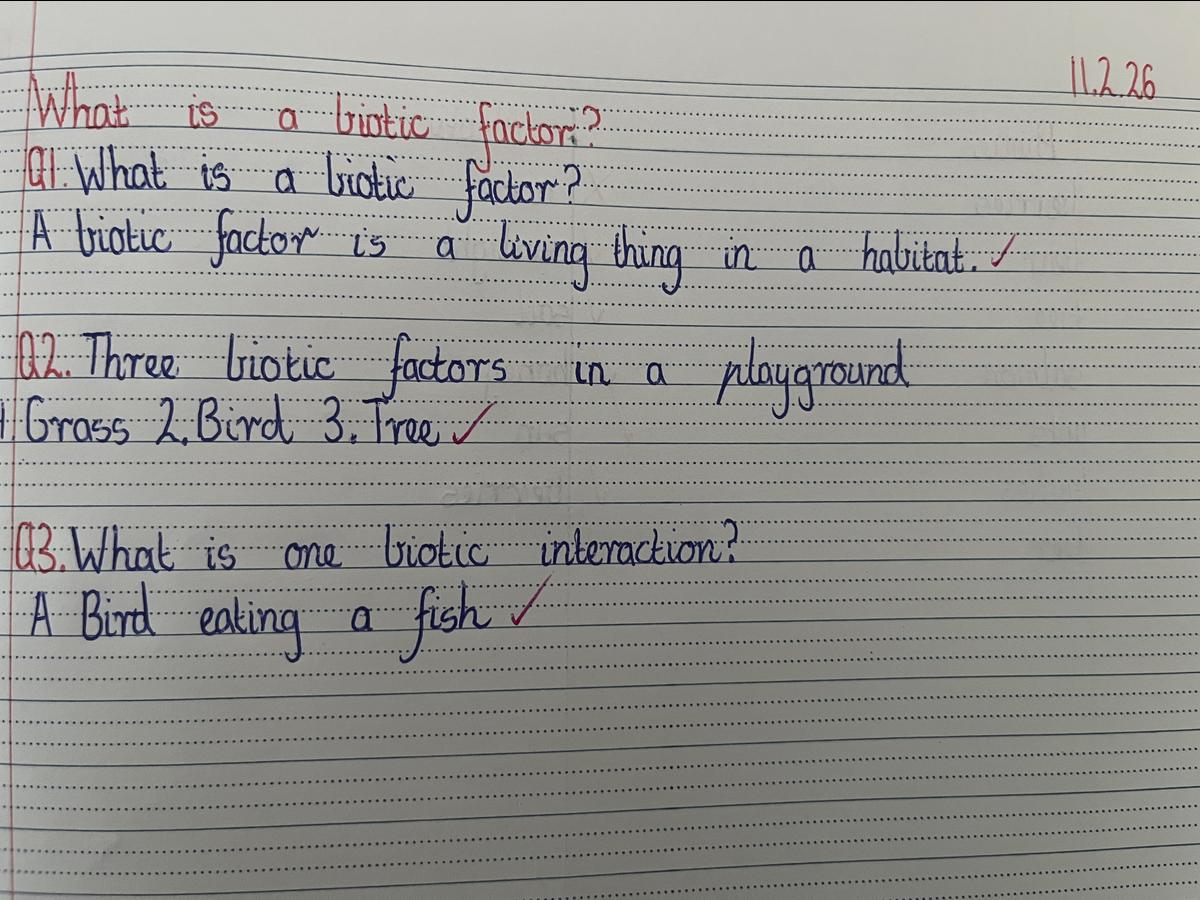 11.2.26
What is a biotic factor?
Q1. What is a biotic factor?
A biotic factor is a living thing in a habitat. ✓
Q2. Three biotic factors in a playground
1. Grass 2. Bird 3. Tree ✓
Q3. What is one biotic interaction?
A Bird eating a fish ✓